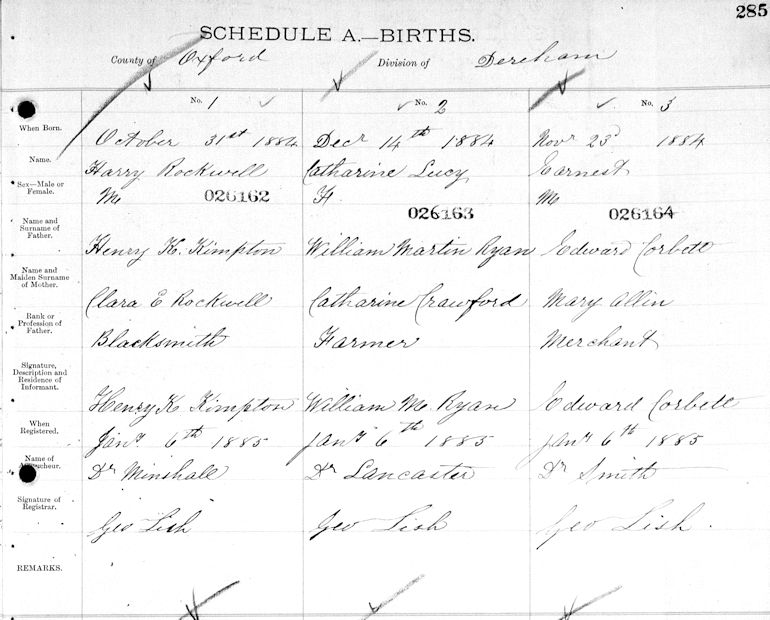 285
SCHEDULE A.—BIRTHS.
County of Oxford Division of Dereham
No. 1 No. 2 No. 3
When Born. October 31st 1884 Decr 14th 1884 Novr 23d 1884
Name. Harry Rockwell Catharine Lucy Earnest
Sex—Male or Female. M F M
026162 026163 026164
Name and Surname of Father. Henry K. Kimpton William Martin Ryan Edward Corbett
Name and Maiden Surname of Mother. Clara E Rockwell Catharine Crawford Mary Allin
Rank or Profession of Father. Blacksmith Farmer Merchant
Signature, Description and Residence of Informant. Henry K Kimpton William M. Ryan Edward Corbett
When Registered. Jany 6th 1885 Jany 6th 1885 Jany 6th 1885
Name of Dr Minshall Dr Lancaster Dr Smith
Signature of Registrar. Geo Lish Geo Lish Geo Lish
REMARKS.